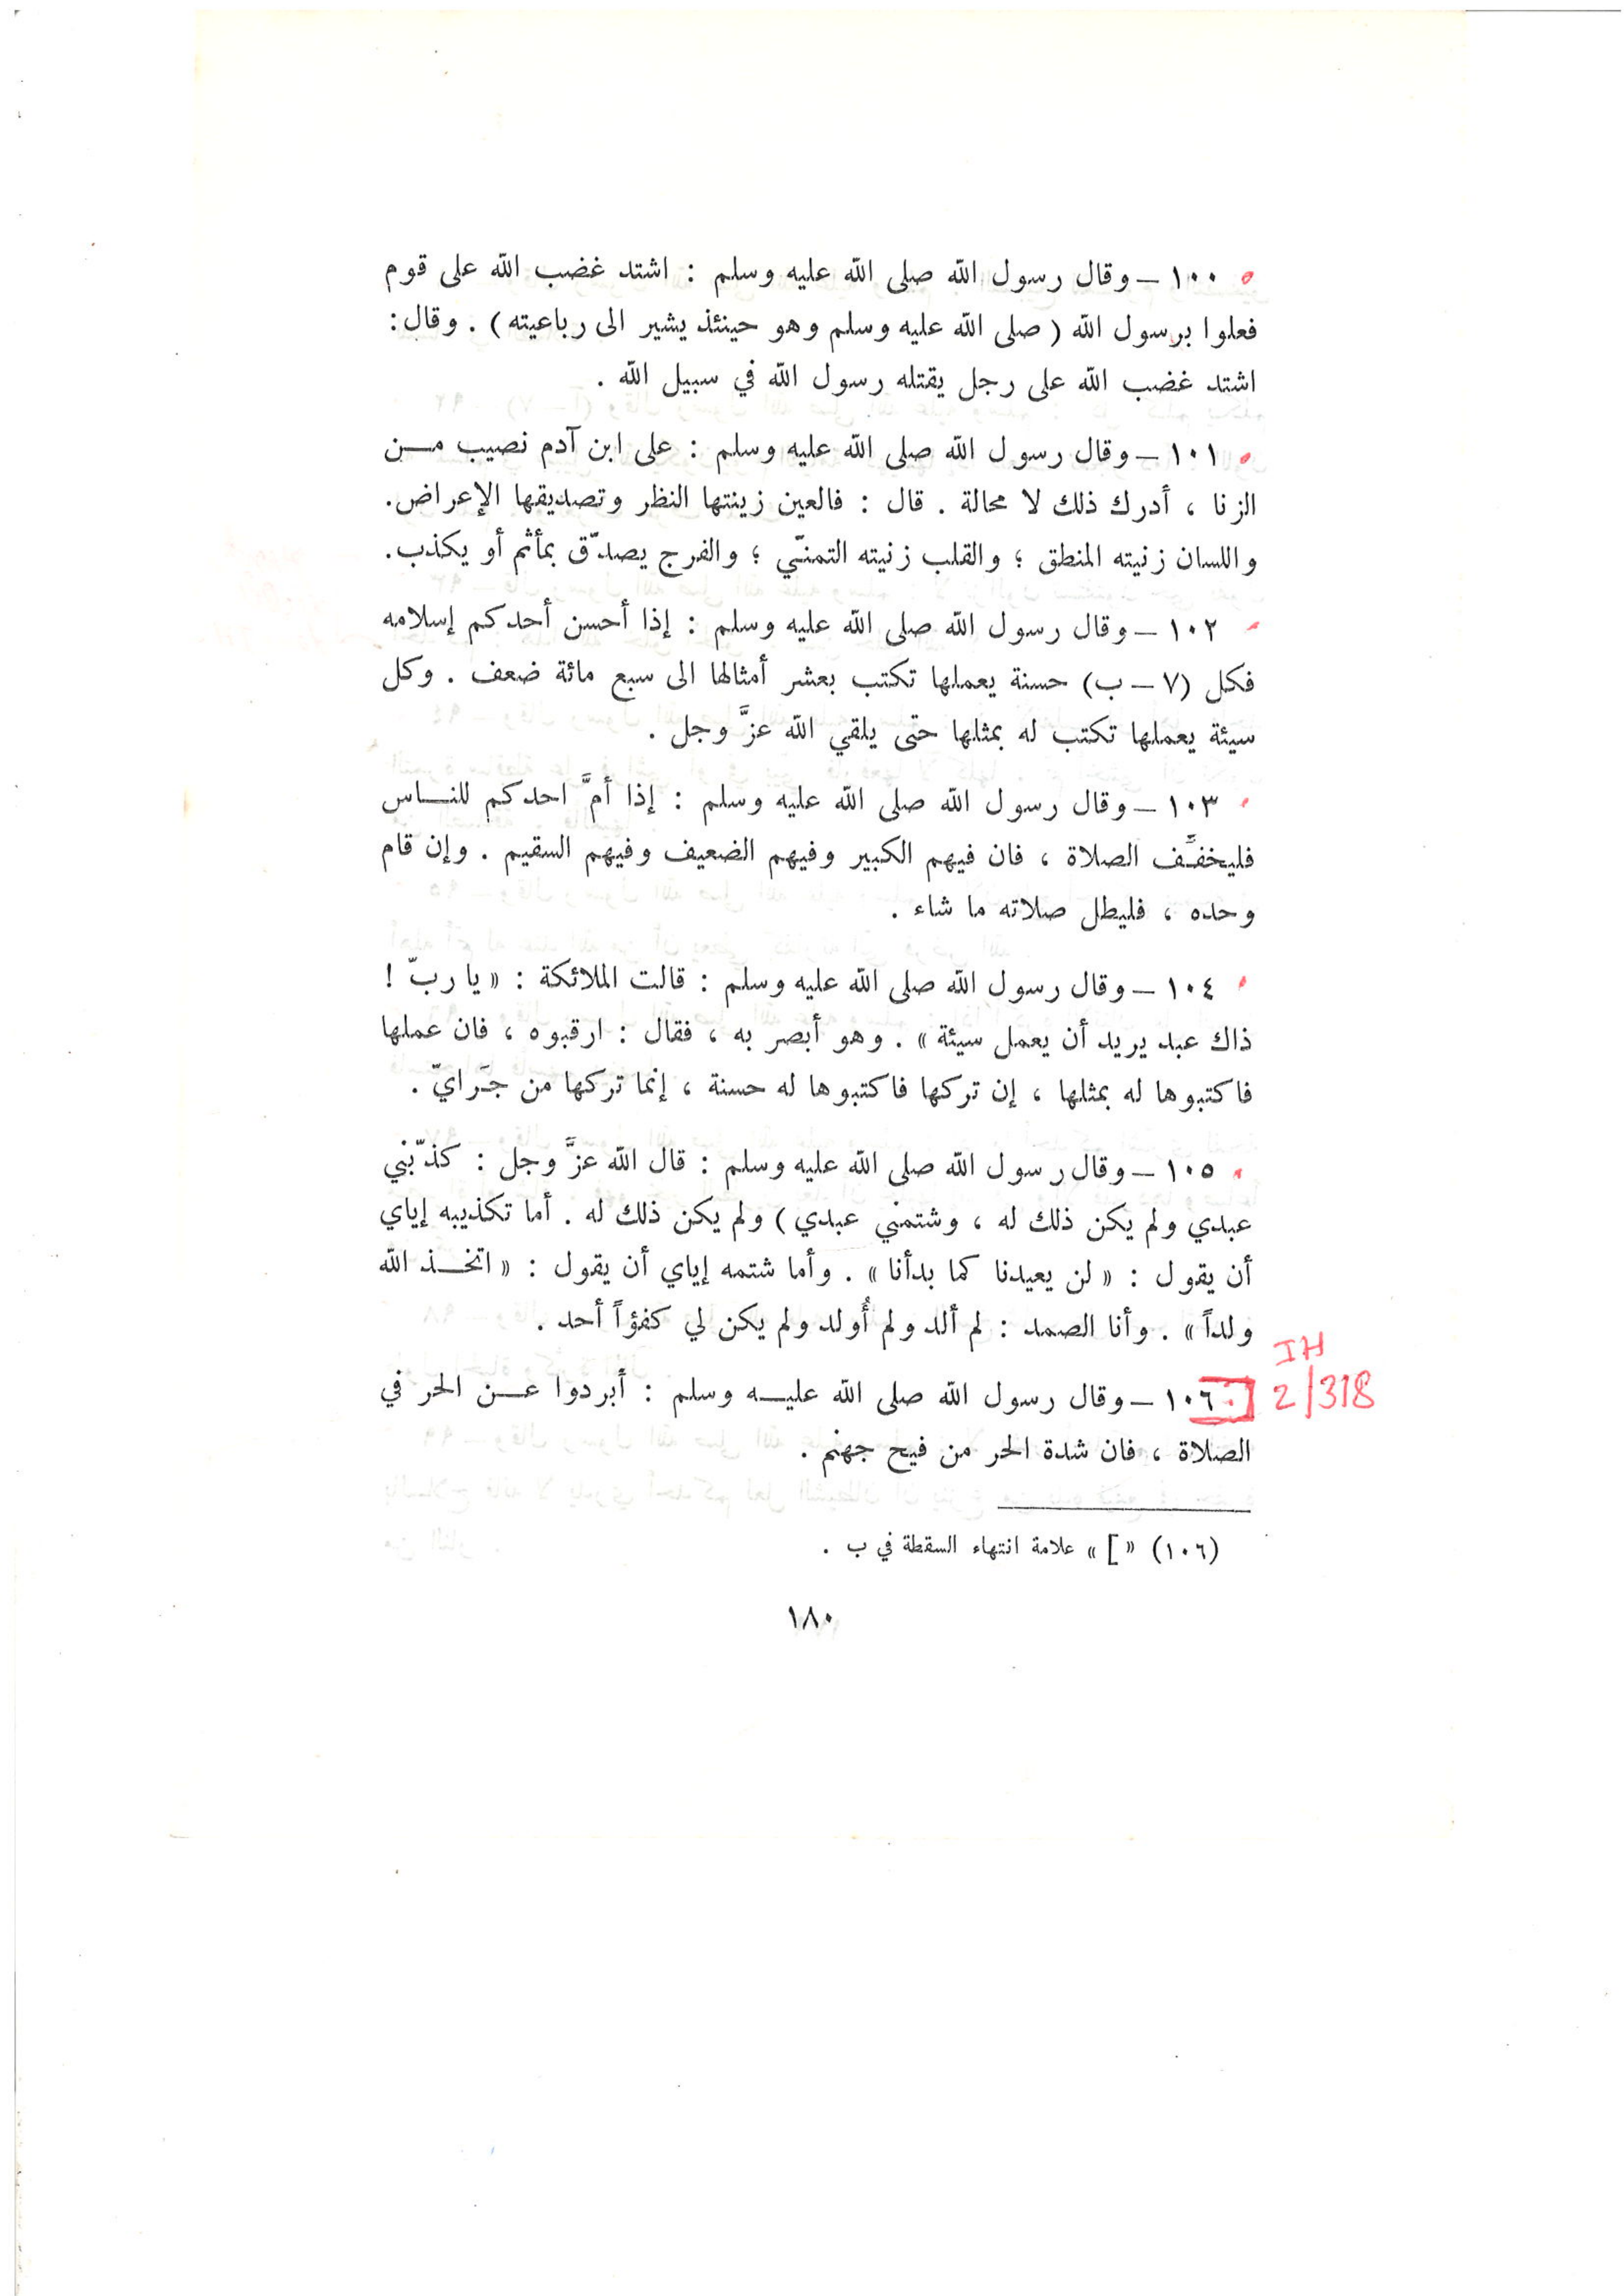 ١٠٠ — وقال رسول الله صلى الله عليه وسلم : اشتد غضب الله على قوم
فعلوا برسول الله ( صلى الله عليه وسلم وهو حينئذ يشير الى رباعيته ) . وقال :
اشتد غضب الله على رجل يقتله رسول الله في سبيل الله .
١٠١ — وقال رسول الله صلى الله عليه وسلم : على ابن آدم نصيب مـــن
الزنا ، أدرك ذلك لا محالة . قال : فالعين زينتها النظر وتصديقها الإعراض.
واللسان زنيته المنطق ؛ والقلب زنيته التمنّي ؛ والفرج يصدّق بمأثم أو يكذب.
١٠٢ — وقال رسول الله صلى الله عليه وسلم : إذا أحسن أحدكم إسلامه
فكل (٧ — ب) حسنة يعملها تكتب بعشر أمثالها الى سبع مائة ضعف . وكل
سيئة يعملها تكتب له بمثلها حتى يلقي الله عزَّ وجل .
١٠٣ — وقال رسول الله صلى الله عليه وسلم : إذا أمَّ احدكم للنـــاس
فليخفَّف الصلاة ، فان فيهم الكبير وفيهم الضعيف وفيهم السقيم . وإن قام
وحده ، فليطل صلاته ما شاء .
١٠٤ — وقال رسول الله صلى الله عليه وسلم : قالت الملائكة : « يا ربّ !
ذاك عبد يريد أن يعمل سيئة » . وهو أبصر به ، فقال : ارقبوه ، فان عملها
فاكتبوها له بمثلها ، إن تركها فاكتبوها له حسنة ، إنما تركها من جَرايّ .
١٠٥ — وقال رسول الله صلى الله عليه وسلم : قال الله عزَّ وجل : كذّبني
عبدي ولم يكن ذلك له ، وشتمني عبدي ) ولم يكن ذلك له . أما تكذيبه إياي
أن يقول : « لن يعيدنا كما بدأنا » . وأما شتمه إياي أن يقول : « اتخـــذ الله
ولداً » . وأنا الصمد : لم ألد ولم أُولد ولم يكن لي كفؤاً أحد .
IH
2/318
١٠٦ — وقال رسول الله صلى الله عليـــه وسلم : أبردوا عـــن الحر في
الصلاة ، فان شدة الحر من فيح جهنم .
(١٠٦) « ] » علامة انتهاء السقطة في ب .
١٨٠